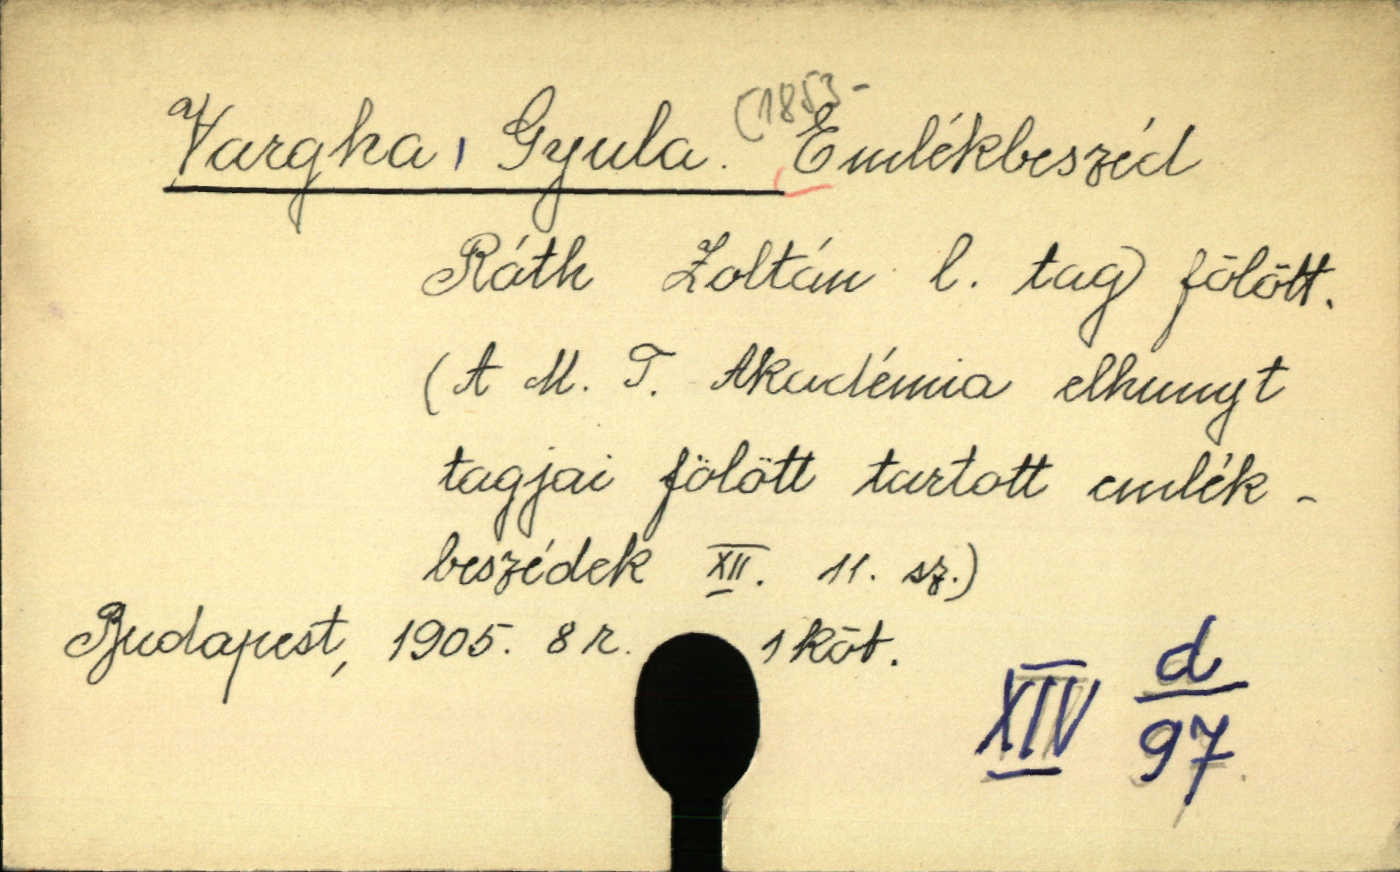 Vargha, Gyula. (1853- Emlékbeszéd
Ráth Zoltán l. tag fölött.
(A M. T. Akadémia elhunyt
tagjai fölött tartott emlék-
beszédek XII. 11. sz.)
Budapest, 1905. 8 r. 1 köt.
XIV d
97